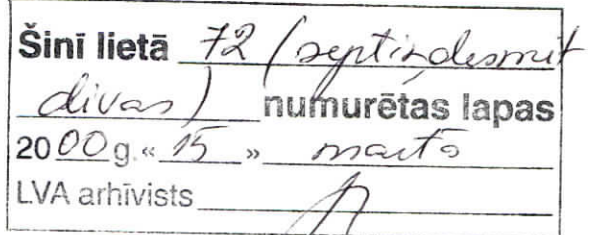 Šinī lietā 72 (septiņdesmit
divas) numurētas lapas
2000 g. « 15 » martā
LVA arhīvists